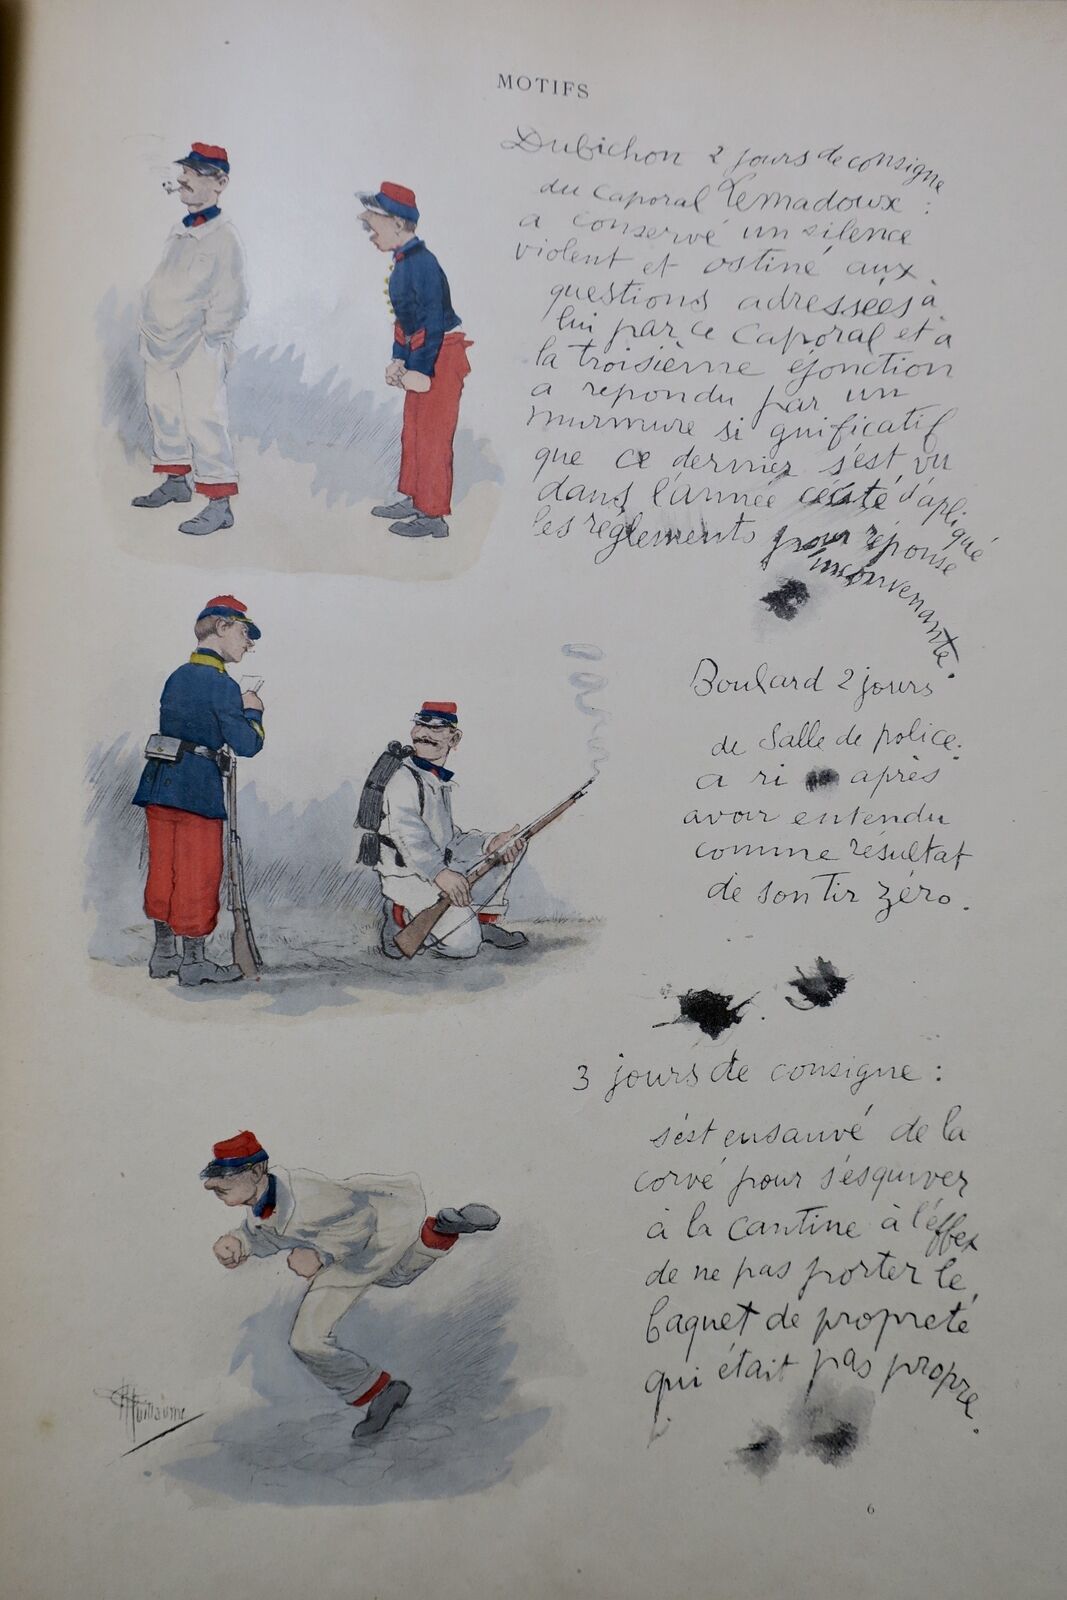 MOTIFS
Dubichon 2 jours de consigne
du caporal Lemadoux :
a conservé un silence
violent et ostiné aux
questions adressées à
lui par ce Caporal et à
la troisième éjonction
a repondu par un
murmure si gnificatif
que ce dernier s'est vu
dans l'armée d'apliqué
les réglements pour réponse
inconvenante.
Boulard 2 jours
de Salle de police :
a ri après
avoir entendu
comme résultat
de son Tir zéro.
3 jours de consigne :
s'est ensauvé de la
corvé pour s'esquiver
à la cantine à l'effet
de ne pas porter le
baquet de propreté
qui était pas propre.
Guillaume
6